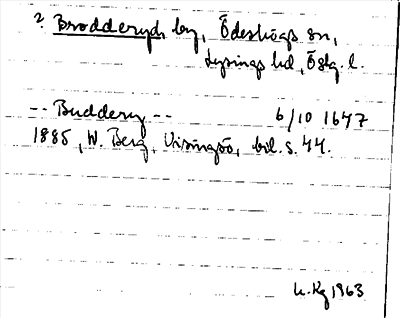 ? Brodderyds by, Ödeshögs sn,
Lysings hd, Östg. l.
-- Buddery -- 6/10 1647
1885, W. Berg, Visingsö, bil. s. 44.
1963